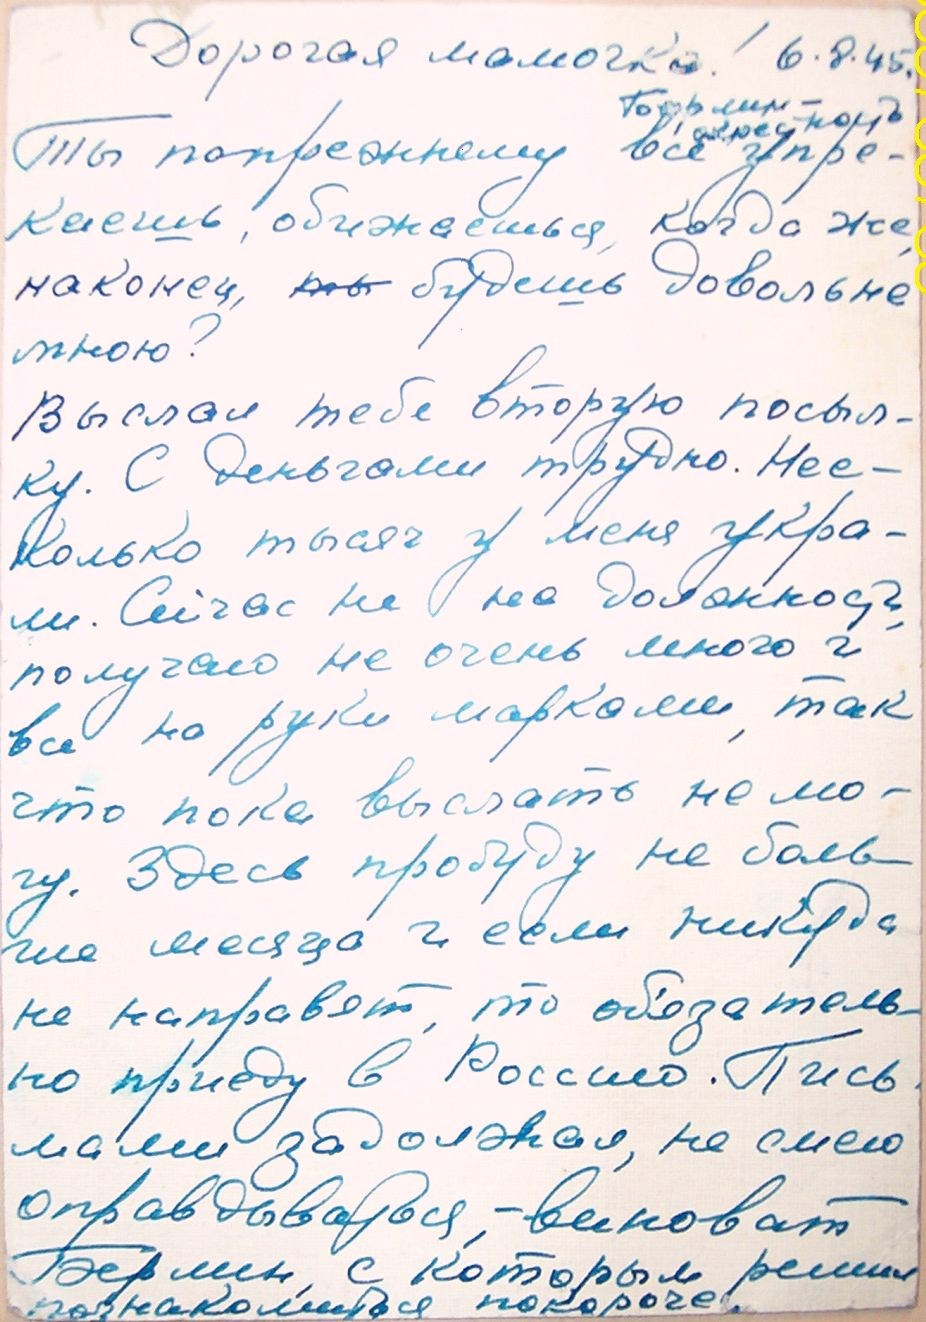 Дорогая мамочка! 6.8.45.
Берлин-
окрестность
Ты попрежнему все упре-
каешь, обижаешься, когда же,
наконец, ты будешь довольне
мною?
Выслал тебе вторую посыл-
ку. С деньгами трудно. Нес-
колько тысяч у меня украл-
ли. Сейчас не на должности,
получаю не очень много и
все на руки марками, так
что пока выслать не мо-
гу. Здесь пробуду не боль-
ше месяца и если никуда
не направят, то обязатель-
но приеду в Россию. Пись-
мами задолжал, не смею
оправдываться, - виноват
Берлин, с которым решил
познакомиться покороче.